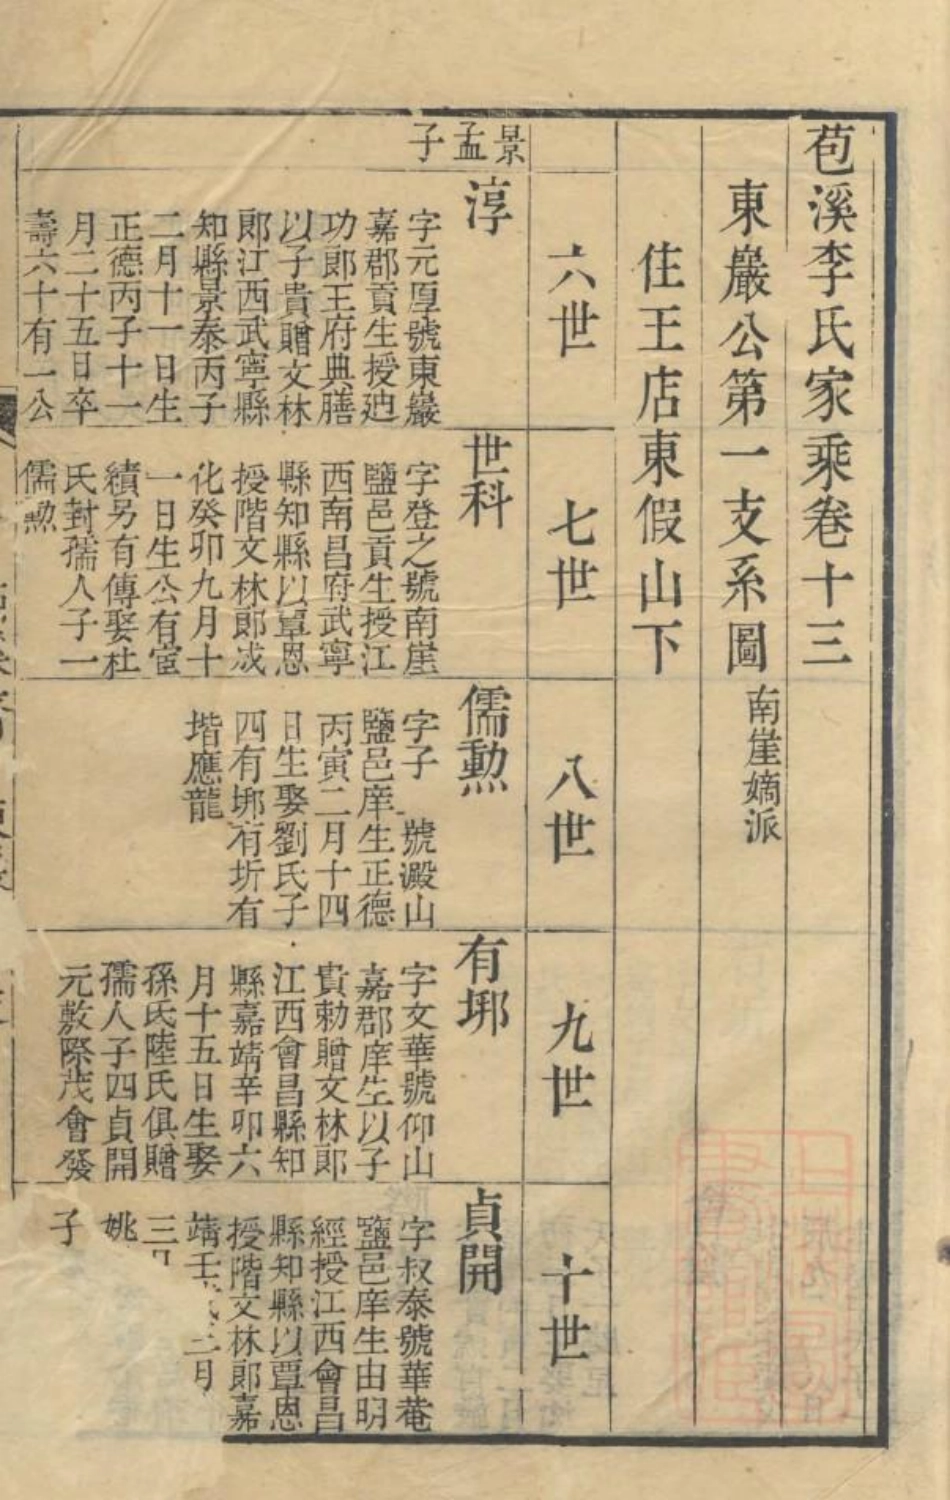 苞溪李氏家乘卷十三
東巖公第一支系圖 南崖嫡派
住王店東假山下
六世
七世
八世
九世
十世
景孟子
淳
字元厚號東巖
嘉郡貢生授廸
功郎王府典膳
以子貴贈文林
郎江西武寧縣
知縣景泰丙子
二月十一日生
正德丙子十一
月二十五日卒
壽六十有一公
世科
字登之號南崖
鹽邑貢生授江
西南昌府武寧
縣知縣以覃恩
授階文林郎成
化癸卯九月十
一日生公有宦
績另有傳娶杜
氏封孺人子一
儒勲
儒勲
字子 號澱山
鹽邑庠生正德
丙寅二月十四
日生娶劉氏子
四有垹有圻有
堦應龍
有垹
字文華號仰山
嘉郡庠生以子
貴勅贈文林郎
江西會昌縣知
縣嘉靖辛卯六
月十五日生娶
孫氏陸氏俱贈
孺人子四貞開
元敷際茂會發
貞開
字叔泰號華菴
鹽邑庠生由明
經授江西會昌
縣知縣以覃恩
授階文林郎嘉
靖壬 三月
三
姚
子